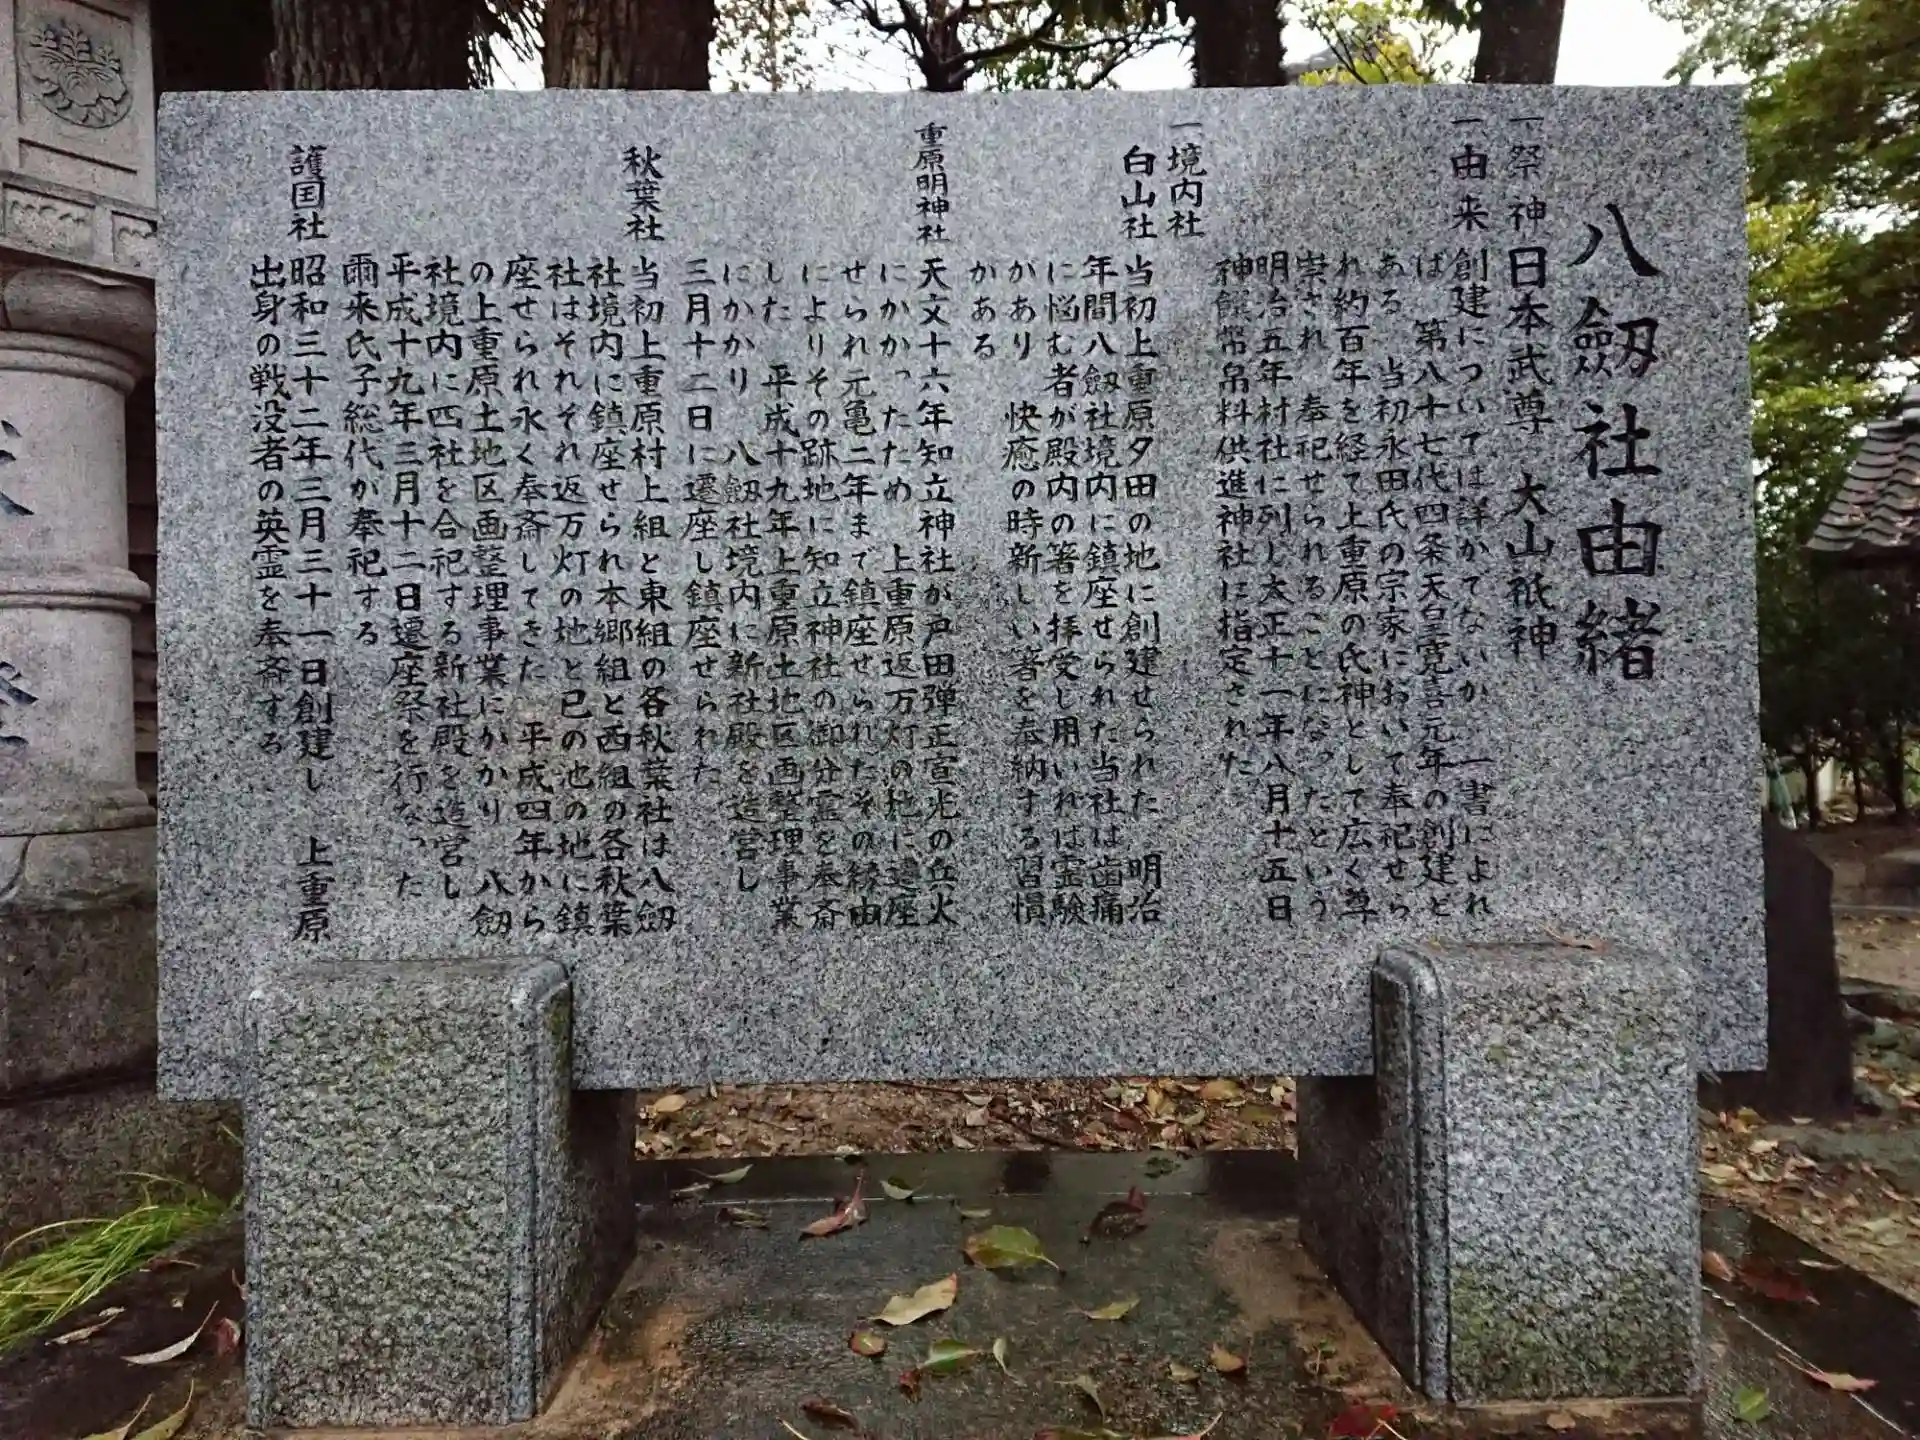 八劔社由緒
一祭神 日本武尊 大山祇神
一由来 創建については詳かでないが 一書によれ
ば 第八十七代四条天皇寛喜元年の創建と
ある 当初永田氏の宗家において奉祀せら
れ約百年を経て上重原の氏神として広く尊
崇され 奉祀せられることになったという
明治五年村社に列し大正十一年八月十五日
神饌幣帛料供進神社に指定された
一境内社
白山社 当初上重原夕田の地に創建せられた 明治
年間八劔社境内に鎮座せられた当社は歯痛
に悩む者が殿内の箸を拝受し用いれば霊験
があり 快癒の時新しい箸を奉納する習慣
がある
重原明神社 天文十六年知立神社が戸田弾正宣光の兵火
にかかったため 上重原返万灯の地に遷座
せられ元亀二年まで鎮座せられたその縁由
によりその跡地に知立神社の御分霊を奉斎
した 平成十九年上重原土地区画整理事業
にかかり 八劔社境内に新社殿を造営し
三月十二日に遷座し鎮座せられた
秋葉社 当初上重原村上組と東組の各秋葉社は八劔
社境内に鎮座せられ本郷組と西組の各秋葉
社はそれぞれ返万灯の地と巳の池の地に鎮
座せられ永く奉斎してきた 平成四年から
の上重原土地区画整理事業にかかり 八劔
社境内に四社を合祀する新社殿を造営し
平成十九年三月十二日遷座祭を行なった
爾来氏子総代が奉祀する
護国社 昭和三十二年三月三十一日創建し 上重原
出身の戦没者の英霊を奉斎する